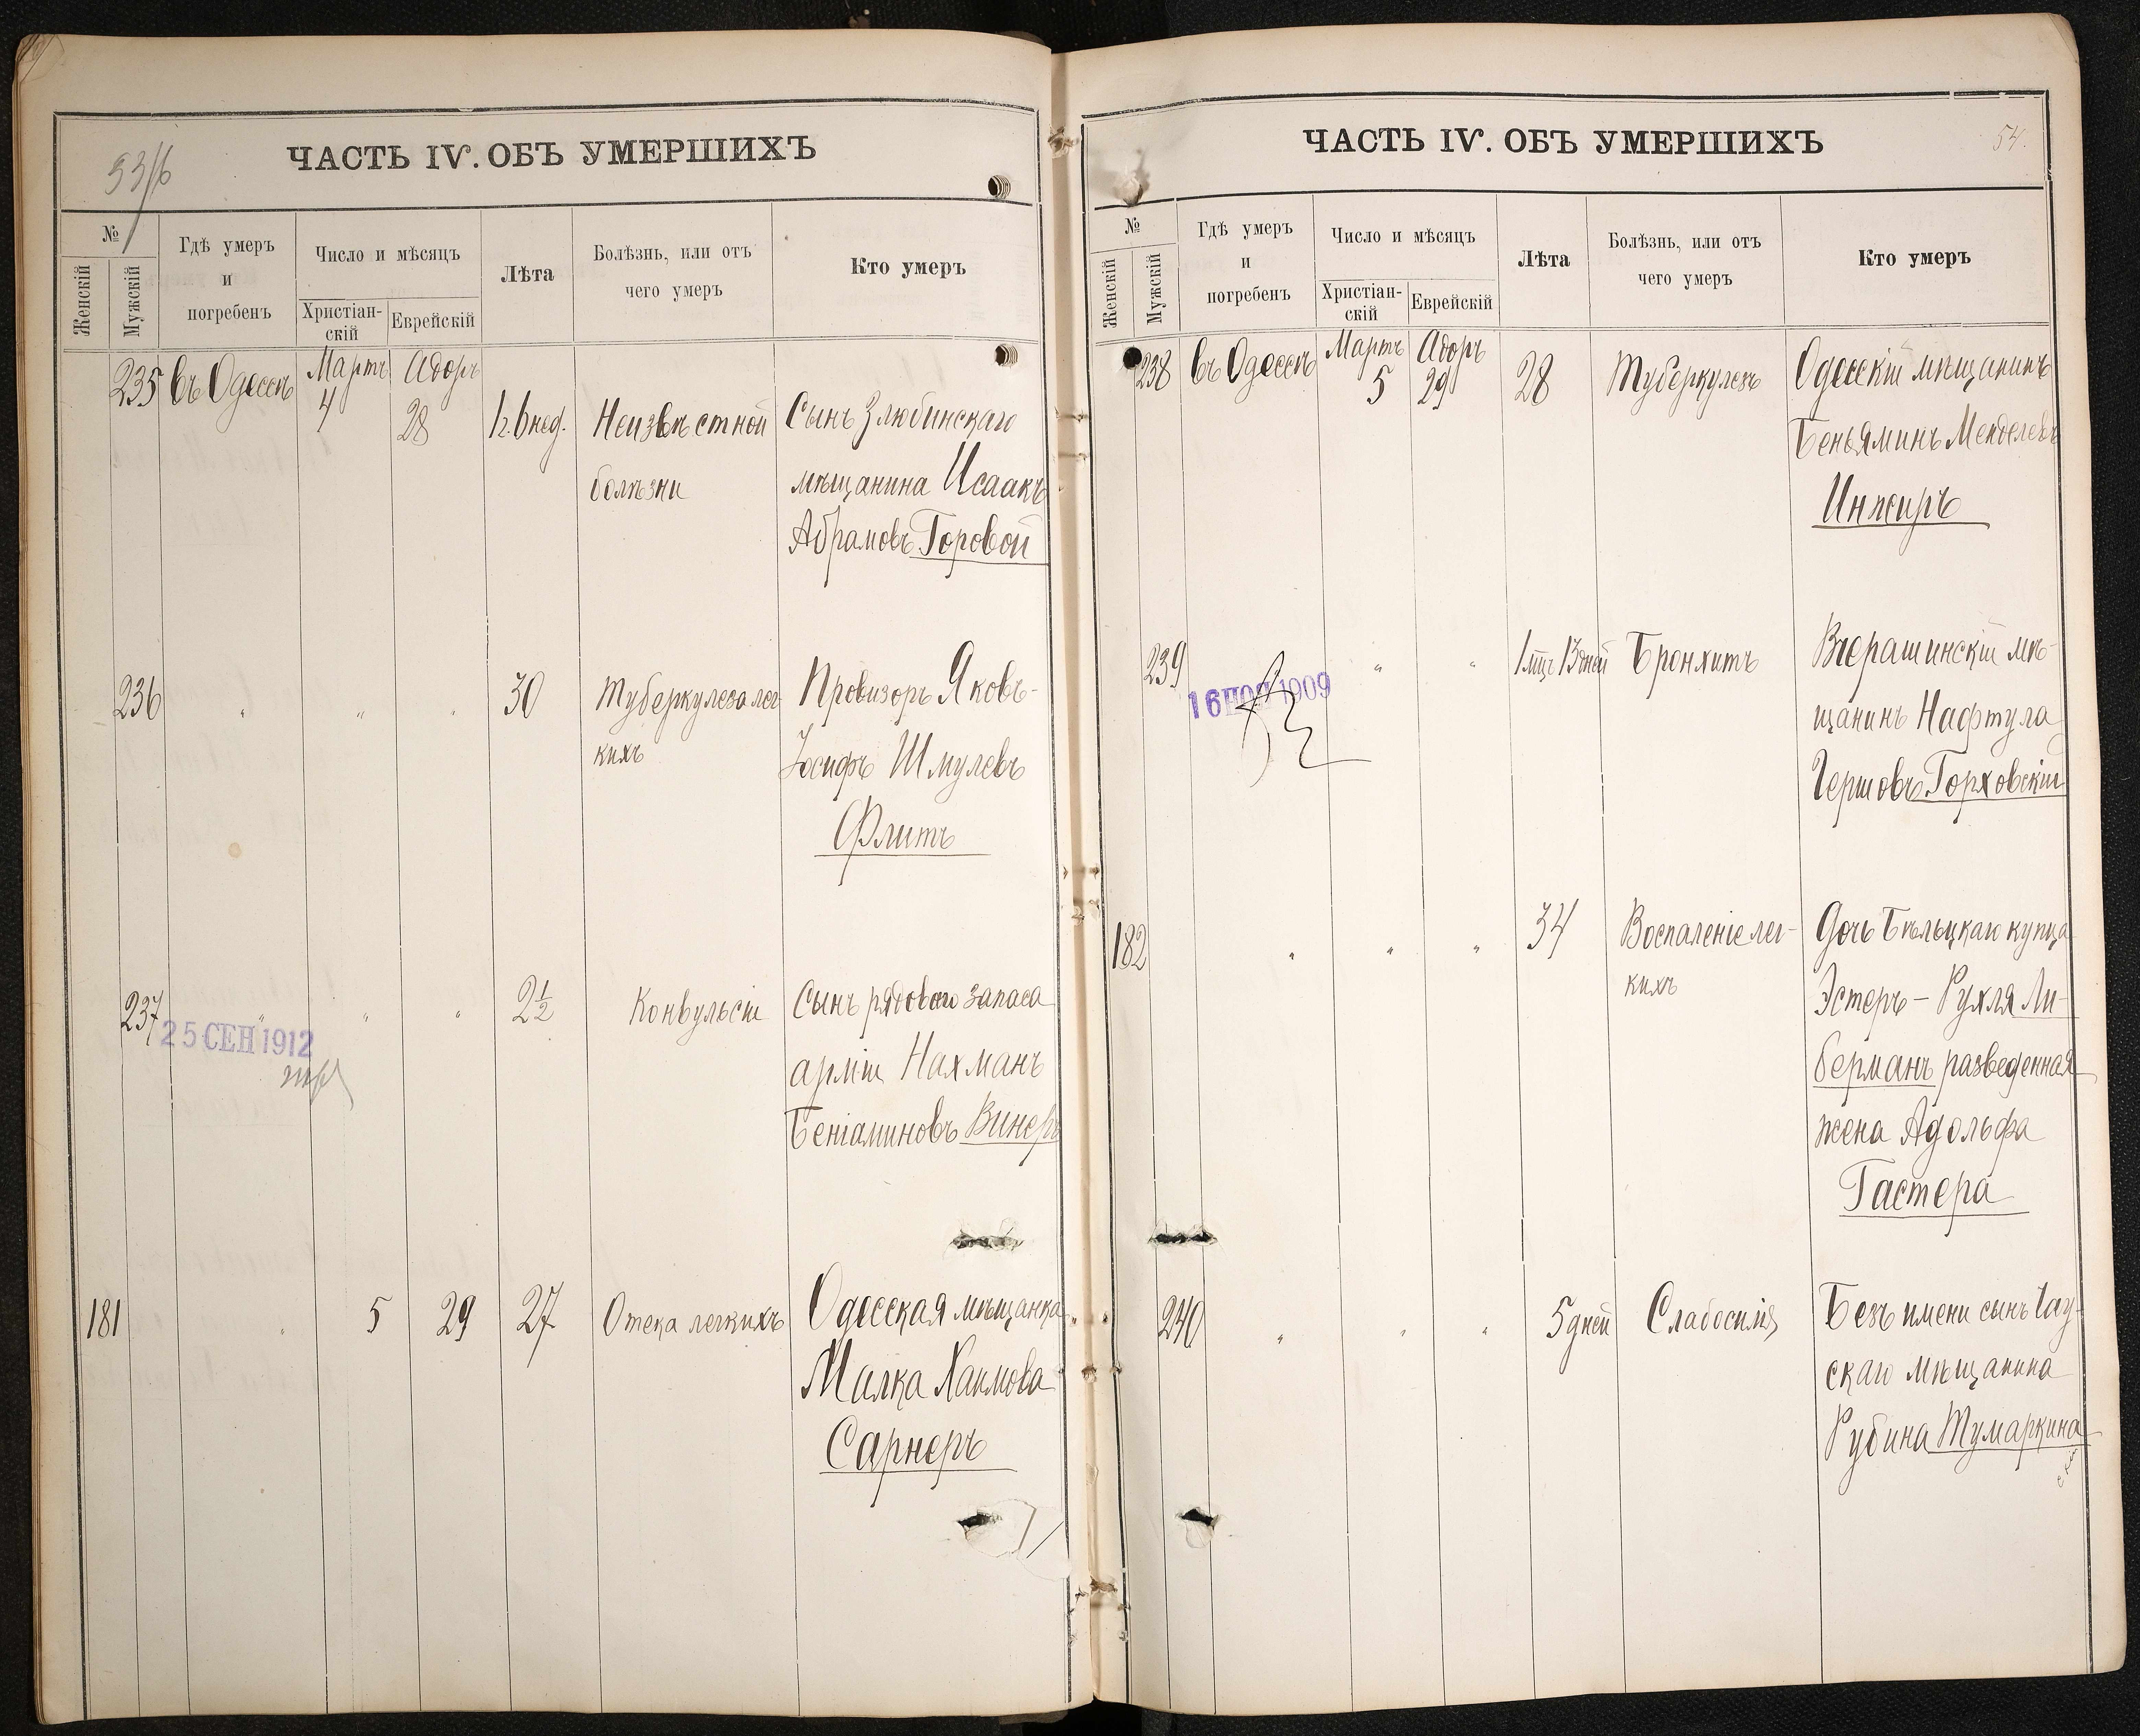 53/б
ЧАСТЬ IV. ОБЪ УМЕРШИХЪ
№
Женскій
Мужскій
Гдѣ умеръ
и
погребенъ
Число и мѣсяцъ
Христіан-
скій
Еврейскій
Лѣта
Болѣзнь, или отъ
чего умеръ
Кто умеръ
235 въ Одессѣ Мартъ 4 Адоръ 28 1г. 6 нед. Неизвѣстной Сынъ Злюбинскаго
болѣзни мѣщанина Исаакъ
Абрамовъ Горовой
236 " " " 30 Туберкулеза лег Провизоръ Яковъ-
кихъ Іосифъ Шмулевъ
Флитъ
237 " " " 2½ Конвульсіи Сынъ рядового запаса
25 СЕН 1912
арміи Нахманъ
Беніаминовъ Винеръ
181 " 5 29 27 Отека легкихъ Одесская мѣщанка
Малка Хаимова
Сарнеръ
54.
ЧАСТЬ IV. ОБЪ УМЕРШИХЪ
№
Женскій
Мужскій
Гдѣ умеръ
и
погребенъ
Число и мѣсяцъ
Христіан-
скій
Еврейскій
Лѣта
Болѣзнь, или отъ
чего умеръ
Кто умеръ
238 въ Одессѣ Мартъ 5 Адоръ 29 28 Туберкулезъ Одесскій мѣщанинъ
Беньяминъ Менделевъ
Инжиръ
239 " " 1 мцъ 13 дней Бронхитъ Вчерашинскій мѣ-
16 1909
щанинъ Нафтула
Гершовъ Горховскій
182 " " " 34 Воспаленіе лег- Дочь Бѣльцкаго купца
кихъ Эстеръ-Рухля Ли-
берманъ разведенная
жена Адольфа
Гастера
240 " " " 5 дней Слабосилія Безъ имени сынъ Чау-
скаго мѣщанина
Рубина Тумаркина